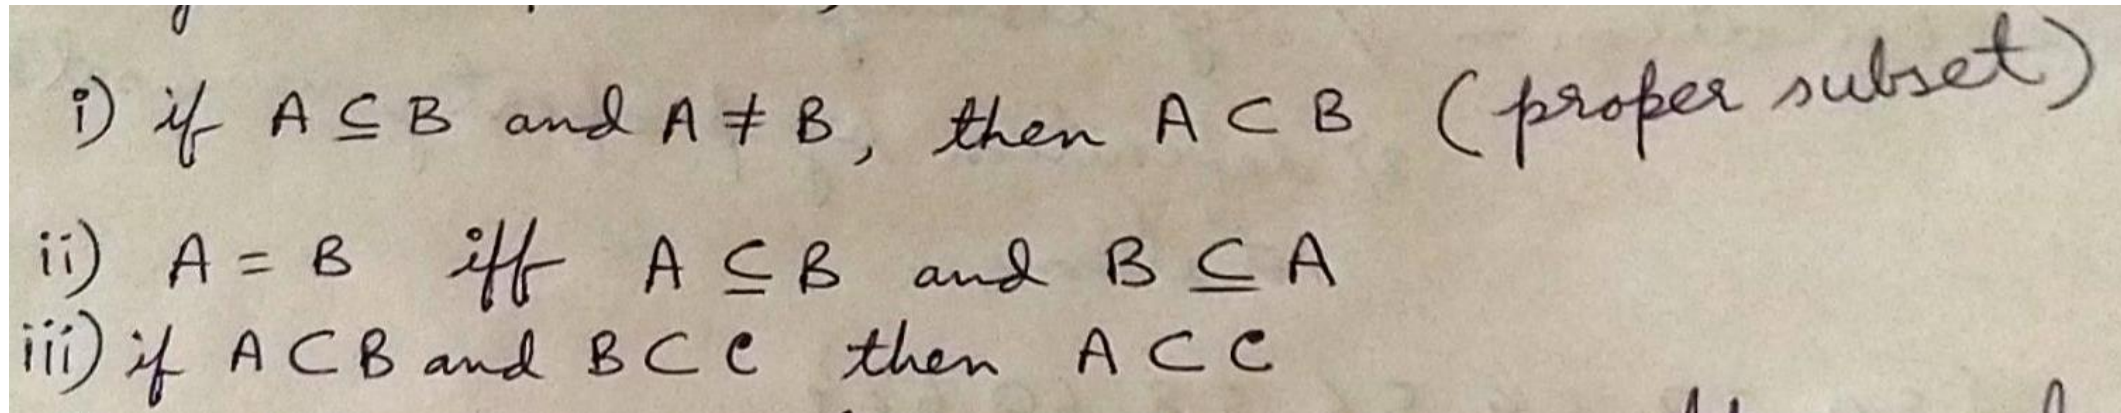 i) if A ⊆ B and A ≠ B, then A ⊂ B (proper subset)
ii) A = B iff A ⊆ B and B ⊆ A
iii) if A ⊂ B and B ⊂ C then A ⊂ C